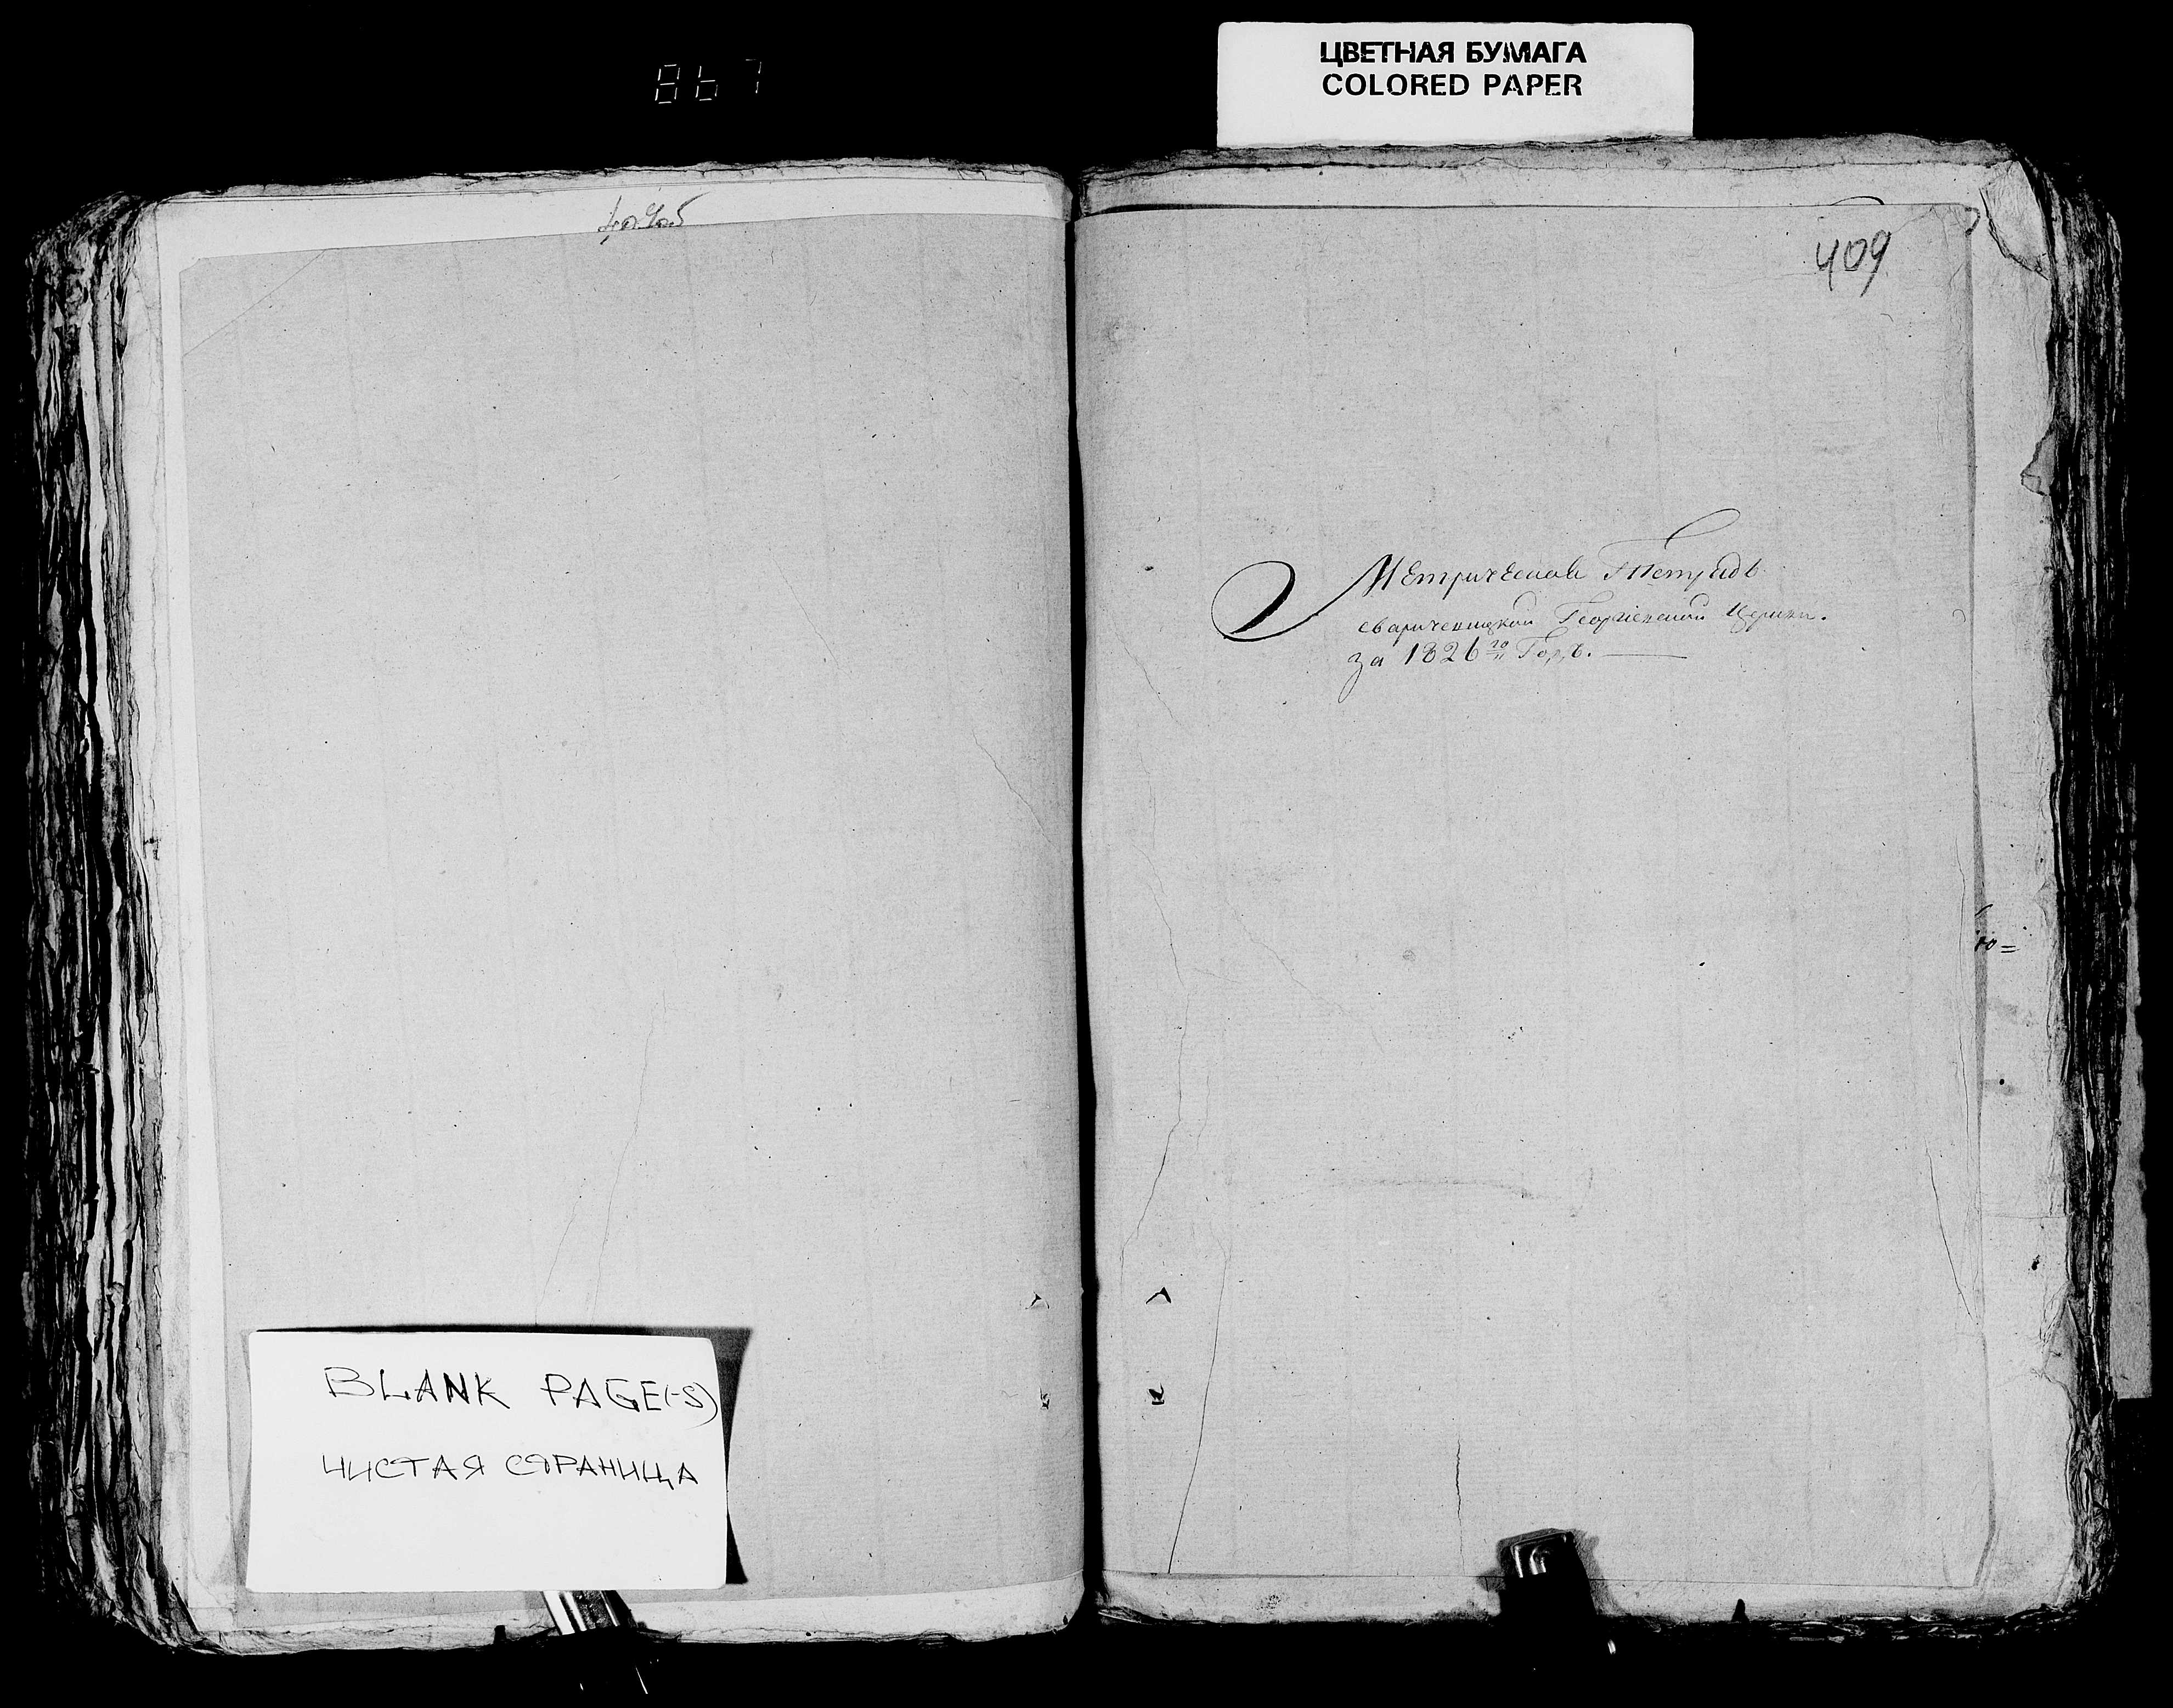 867
ЦВЕТНАЯ БУМАГА
COLORED PAPER
409
Метрическая Тетрадь
сваричевицкой Георгіевской Церкви.
за 1826го Годъ.
ю=
BLANK PAGE(-S)
ЧИСТАЯ СТРАНИЦА